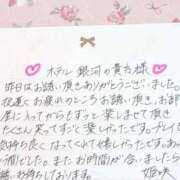 ホテル 銀河の貴方様
昨日はお誘い頂きありがとうございました。
夜遅くお疲れのところお誘い頂き、お部
屋に入ってからもずっと楽しませて頂き
たくさん笑ってすごく楽しかったです。プレイも
気持ち良くなってくれて嬉しかったです。あっ
という間でした。またお時間が合いましたら
お待ちしております。